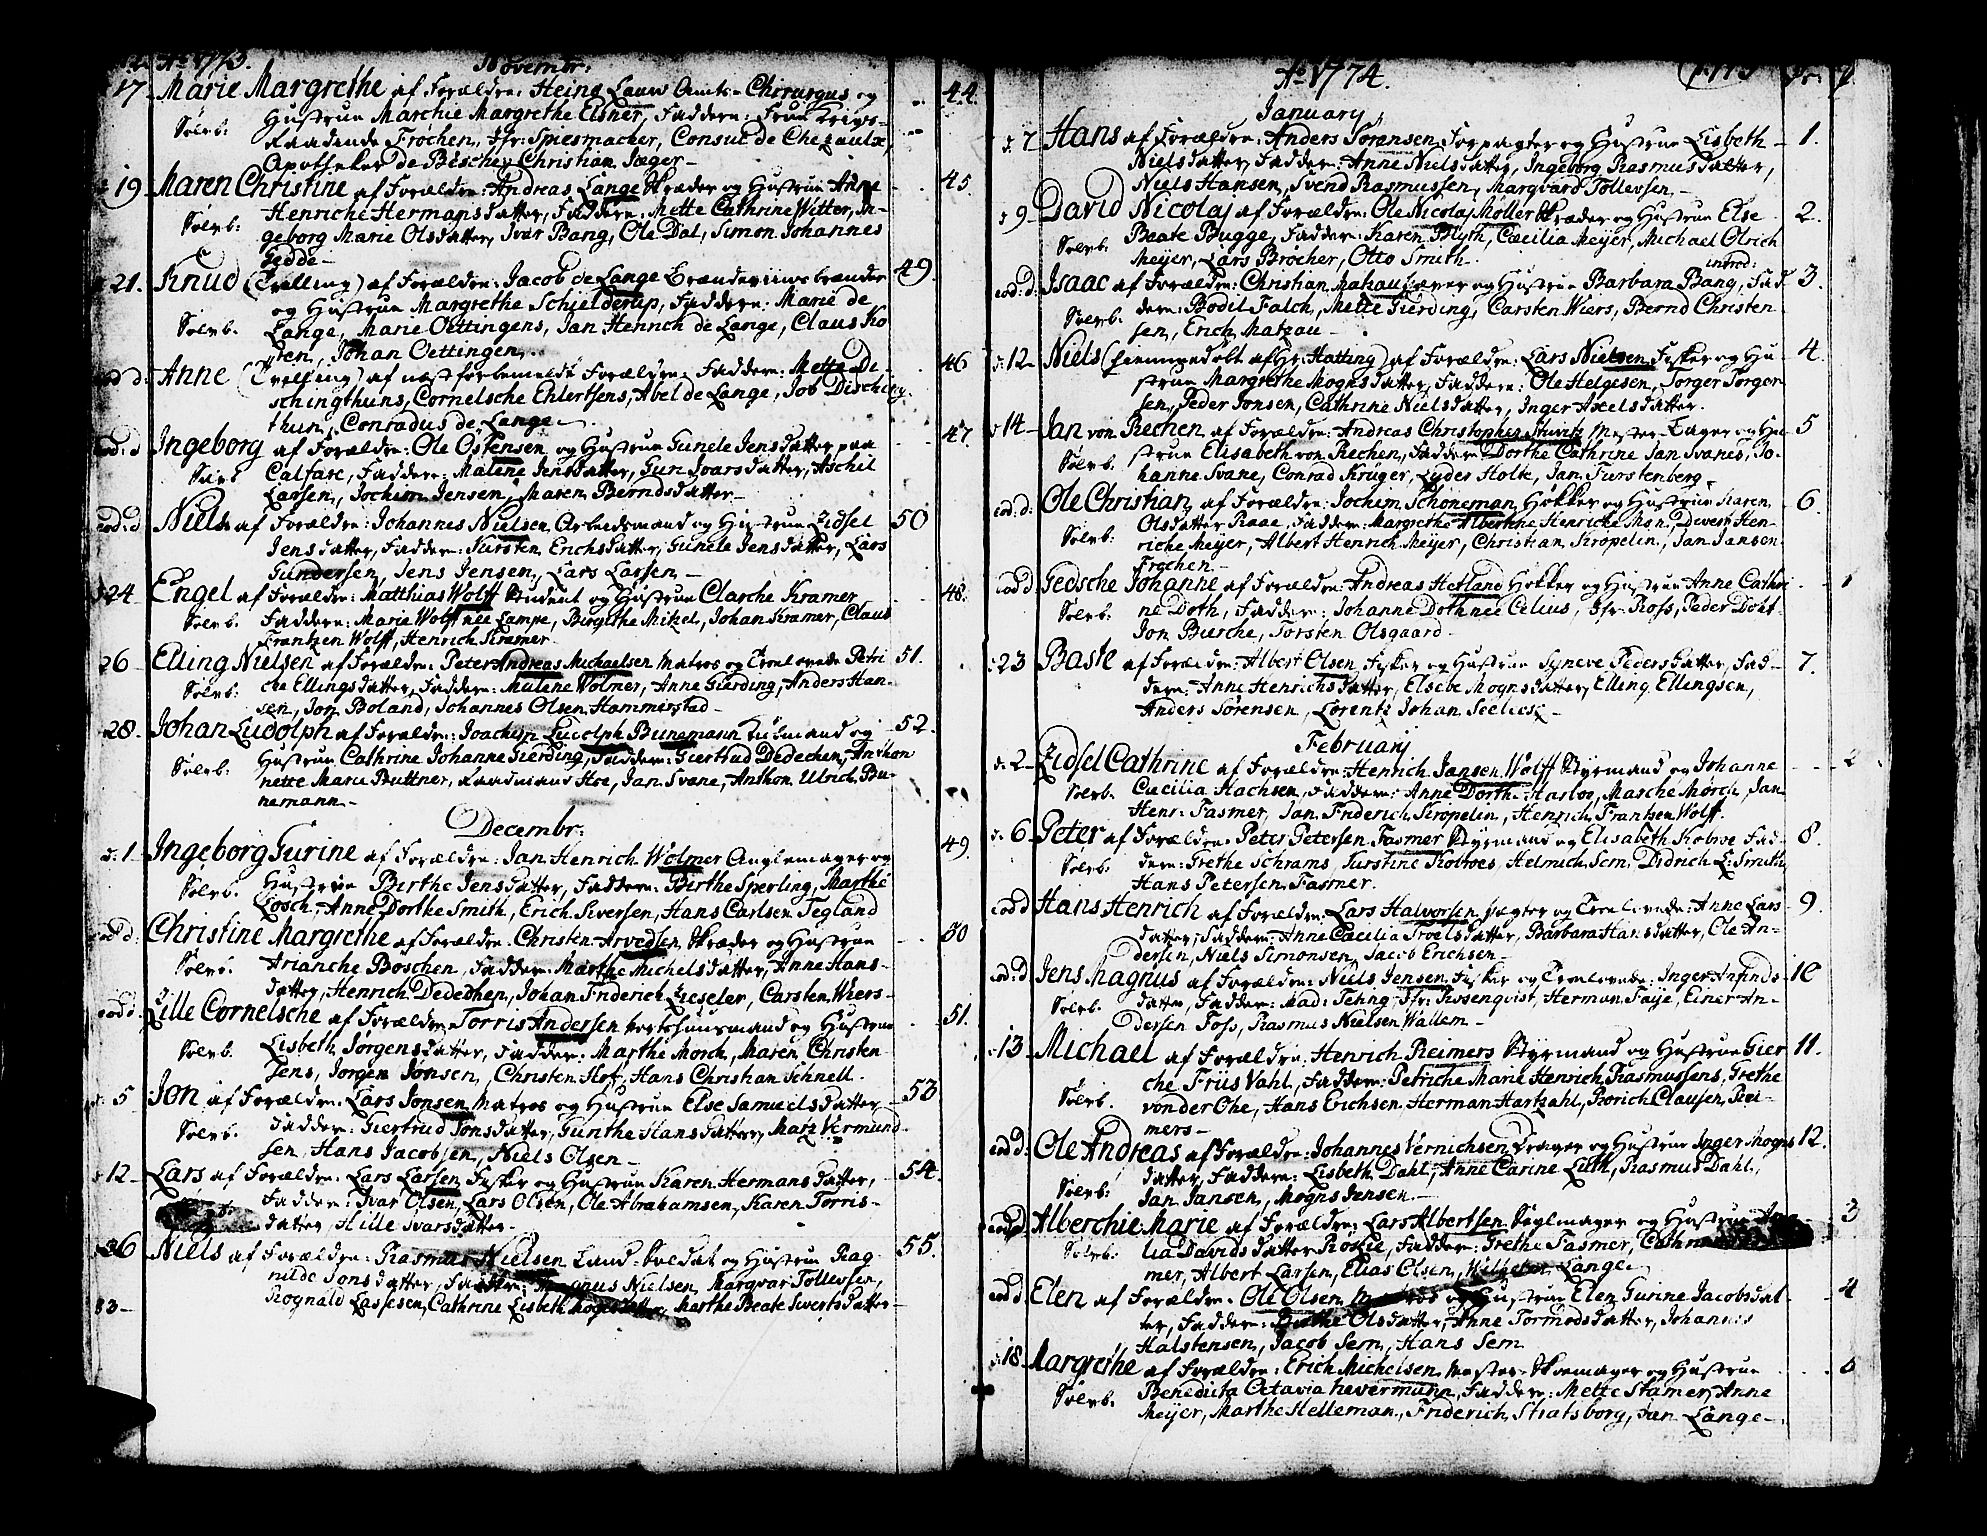 Aº 1773. Novembr:
17. Marie Margrethe af Forældre: Heing Lauw Amts-Chirurgus og 44.
Hustrue Marchie Margrethe Elsner, Faddere: Frue Krigs-
Sølvb: Raadinde Frøchen, Jfr: Spiesmacher, Consul de Chezaulx,
Apotheker de Besche, Christian Jæger-
19 Maren Christine af Forældre: Andreas Lange Skræder og Hustrue Anne 45.
Henriche Hermansdatter, Faddere: Mette Cathrine Witter, In-
Sølvb: geborg Marie Olsdatter, Ivar Bang, Ole Dal, Simon Johannes
Gedde-
21. Knud (Tvilling) af Forældre: Jacob de Lange Brændeviinsbrænder 49.
og Hustrue Margrethe Schielderup, Faddere: Marie de
Sølvb. Lange, Marie Oettingens, Jan Henrich de Lange, Claus Ko
ren, Johan Oettingen.
eod d: Anne (Tvilling) af næstforbemeldte Forældre, Faddere: Mette Di- 46
schingthuns, Cornelsche Ehlertsens, Abel de Lange, Job Dischig-
thun, Conradus de Lange-
eod: d Ingeborg af Forældre: Ole Ostensen og Hustrue Gunele Jensdatter paa 47.
Calfare, Faddere: Malene Jensdatter, Guri Ivarsdatter, Aschil
Larsen, Jochim Jensen, Maren Berndsdatter-
eod: d Niels af Forældre: Johannes Nielsen Arbeidsmand og Hustrue Zidsel 50
Jensdatter, Faddere: Kirsten Erichsdatter, Gunele Jensdatter, Lars
Gundersen, Jens Jensen, Lars Larsen-
24. Engel af Forældre: Matthias Wolff Student og Hustrue Clarche Kramer 48.
Sølvb. Faddere: Marie Wolff née Lampe, Birgithe Mitzel, Johan Kramer, Claus
Frantzen Wolff, Henrich Kramer-
26 Elling Nielsen af Forældre: Peter Andreas Michaelsen Matros og Troelovede Petri 51.
Sølvb: che Ellingsdatter, Faddere: Malene Wolmer, Anne Gierding, Anders Han-
sen, Jon Boland, Johannes Olsen Hammerstad-
28. Johan Ludolph af Forældre: Joachim Ludolph Bunemann Kiøbmand og 52.
Hustrue Cathrine Johanne Gierding, Faddere: Giertrud Dedechen, Anthon
Sølvb: nette Marie Buttner, Raadmand Hoe, Jan Svane, Anthon Ulrich Bu-
nemann-
Decembr:
d. 1 Ingeborg Gurine af Forældre: Jan Henrich Wolmer Anglemager og 49.
Sølvb. Hustrue Birthe Jensdatter, Faddere: Birthe Sperling, Marthe
Losch, Anne Dorthe Smith, Erich Siversen, Hans Carlsen Tegland
eod d: Christine Margrethe af Forældre: Christen Arvedsen Skræder og Hustrue 50
Sølvb. Arianche Böschen, Faddere: Marthe Michelsdatter, Anne Hans-
datter, Henrich Dedechen, Johan Friderich Zieseler, Carsten Wiers-
eod d: Lille Cornelsche af Forældre: Torris Andersen Portehuusmand og Hustrue 51.
Sølvb. Lisbeth Jørgensdatter, Faddere: Marthe Morch, Maren Christen-
sens, Jørgen Jonsen, Christen Slof, Hans Christian Schnell.
5 Jon af Forældre: Lars Jonsen Matros og Hustrue Else Samuelsdatter, 53
Sølvb. Faddere: Giertrud Jonsdatter, Gunthe Hansdatter, Matz Vermund-
sen, Hans Jacobsen, Niels Olsen-
12 Lars af Forældre: Lars Larsen Fisker og Hustrue Karen Hermansdatter, 54.
Faddere: Ivar Olsen, Lars Olsen, Ole Abrahamsen, Karen Torris-
datter, Hille Ivarsdatter-
26 Niels af Forældre: Rasmus Nielsen Land-Soldat og Hustrue Rag- 55.
nilde Jonsdatter, Faddere: Magnus Nielsen, Marqvar Tollevsen,
Rognald Lassesen, Cathrine Lisbeth Mogensdatter, Marthe Beate Sivertsdatter-
Aº 1774.
January
d: 7 Hans af Forældre: Anders Sørensen Forpagter og Hustrue Lisbeth 1.
Nielsdatter, Faddere: Anne Nielsdatter, Ingeborg Rasmusdatter,
Niels Hansen, Svend Rasmussen, Marqvard Tollevsen-
d 9 David Nicolaj af Forældre: Ole Nicolaj Møller Skræder og Hustrue Else 2.
Sølvb. Beate Bugge, Faddere: Karen Blyth, Cæcilia Meyer, Michael Olrich
Meyer, Lars Brocher, Otto Smith.
introd:
eod: d. Isaac af Forældre: Christian Matzau Farver og Hustrue Barbara Bang, Fad- 3.
Sølvb. dere: Bodil Falch, Mette Gierding, Carsten Wiers, Bernd Christen-
sen, Erich Matzau-
d: 12 Niels (hiemmedøbt af Hr: Hatting) af Forældre: Lars Nielsen Fisker og Hu- 4.
strue Margrethe Mognsdatter, Faddere: Ole Helgesen, Torger Torger-
sen, Peder Jonsen, Cathrine Nielsdatter, Inger Axelsdatter.
14 Jan von Rechen af Forældre: Andreas Christopher Sturtz Mester-Bager og Hu- 5
Sølvb: strue Elisabeth von Rechen, Faddere: Dorthe Cathrine Jan Svanes, Jo-
hanne Svane, Conrad Krüger, Lyder Holte, Jan Furstenberg-
eod: d: Ole Christian af Forældre: Jochim Schöneman Høkker og Hustrue Karen 6.
Sølvb: Olsdatter Raae, Faddere: Margrethe Alberthine Henriche Mon, Divert Hen-
riche Meyer, Albert Henrich Meyer, Christian Kropelin, Jan Jansen
Frochen-
eod d Gedsche Johanne af Forældre: Andreas Hetland Høkker og Hustrue Anne Cathri 1
Sølvb: ne Doth, Faddere: Johanne Doth née Celius, Jfr: Ross, Peder Doht-
Jon Bierche, Torsten Olsgaard-
23 Baste af Forældre: Albert Olsen Fisker og Hustrue Syneve Pedersdatter, Fad- 7.
dere: Anne Henrichsdatter, Elsebe Mognsdatter, Elling Ellingsen,
Anders Sørensen, Lorentz Johan Seeliese-
February
d: 2 Zidsel Cathrine af Forældre: Henrich Jansen Wolff Styrmand og Johanne 2
Sølvb. Cæcilia Hachsen, Faddere: Anne Dorthe Harloe, Masche Mørch, Jan
Henr: Fasmer, Jan Friderich Kropelin, Henrich Frantzen Wolff.
6 Peter af Forældre: Peter Petersen Fasmer Styrmand og Elisabeth Kobroe Fad- 8.
Sølvb: dere: Grethe Schrams, Kirstine Kobroes, Helmich Sem, Didrich L: Smith,
Hans Petersen Fasmer.
eod d Hans Henrich af Forældre: Lars Halvorsen Vægter og Troelovede: Anne Lars- 9.
datter, Faddere: Anne Cæcilia Troelsdatter, Barbara Hansdatter, Ole An-
dersen, Niels Simonsen, Jacob Erichsen-
eod: d Jens Magnus af Forældre: Niels Jensen Fisker og Troelovede: Inger Anfinds- 10
Sølvb. datter, Faddere: Mad: Tehng, Jfr: Rosenqvist, Herman Faije, Einer An-
dersen Foss, Rasmus Nielsen Wallem-
13 Michael af Forældre: Henrich Reimers Styrmand og Hustrue Gier 11.
che Friis Vahl, Faddere: Petriche Marie Henrich Rasmussens, Grethe
Sølvb. von der Ohe, Hans Erichsen, Herman Hartzahl, Rorich Clausen Rei-
mers-
eod d: Ole Andreas af Forældre: Johannes Vernichsen Drager og Hustrue Inger Mogns 12.
Sølvb: datter, Faddere: Lisbeth Dahl, Anne Carine Luth, Rasmus Dahl,
Jan Jansen, Mogns Jensen.-
eod d. Alberchie Marie af Forældre: Lars Albertsen Seylmager og Hustrue 3
Sølvb. lia Davidsdatter Roskie, Faddere: Grethe Fasmer,
mer, Albert Larsen, Elias Olsen, Wilhelm Lange-
eod d Elen af Forældre: Ole Olsen Matros og Hustrue Elen Gurine Jacobsdat- 4
ter, Faddere: Birthe Olsdatter, Anne Tormodsdatter, Johannes
Halstensen, Jacob Sem, Hans Sem
18. Margrethe af Forældre: Erich Michelsen Mester-Skomager og Hustrue
Sølvb. Benedicta Octavia Nevermann, Faddere: Mette Stamer, Anne
Meyer, Marthe Helleman, Friderich Stratsborg, Jan Lange-